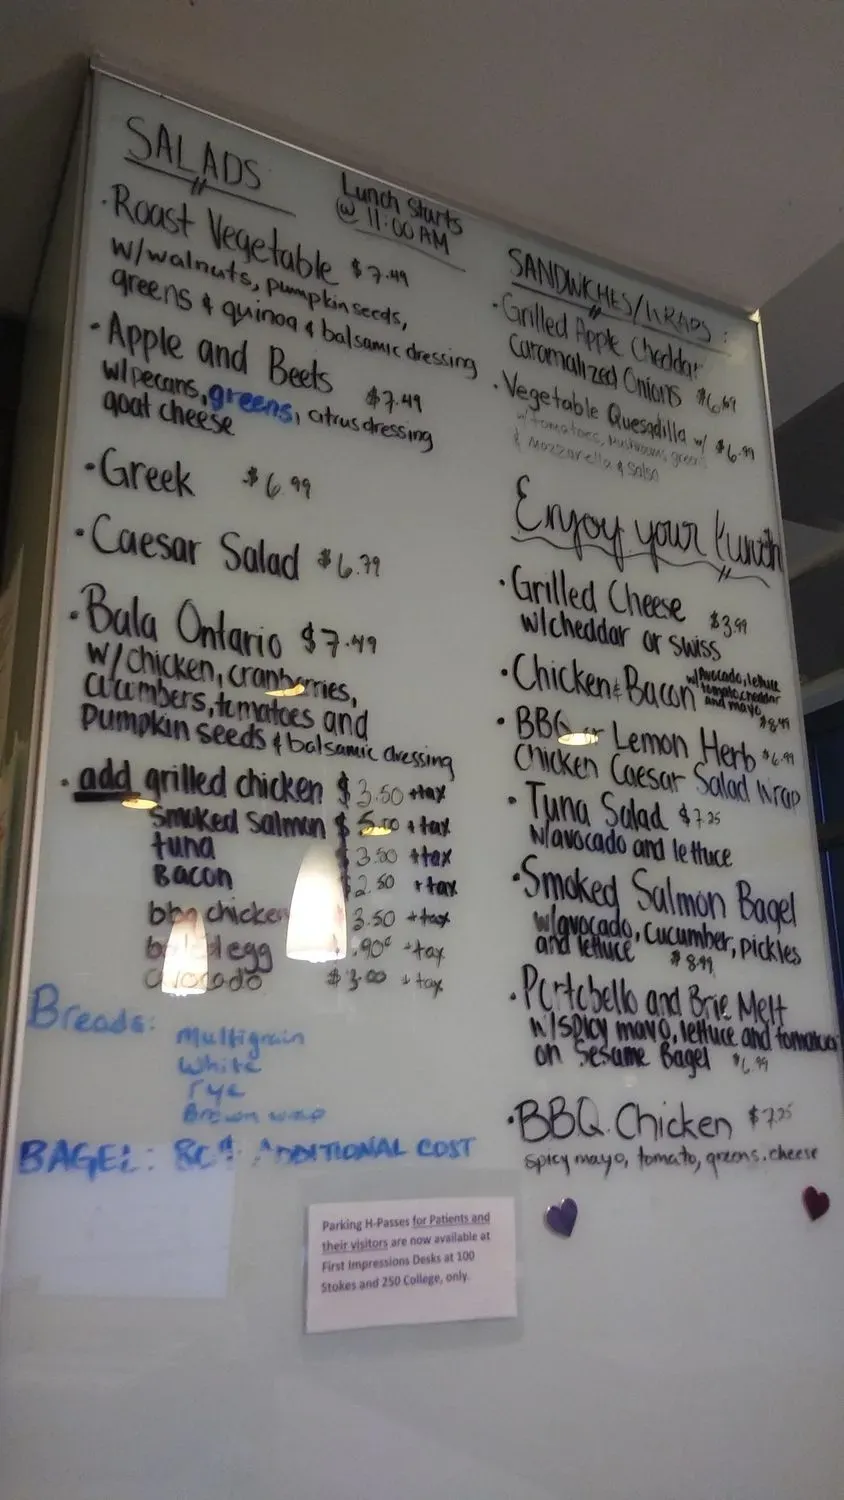 SALADS
Lunch Starts
@ 11:00 AM
·Roast Vegetable $7.49
w/walnuts, pumpkin seeds,
greens & quinoa & balsamic dressing
·Apple and Beets $7.49
w/pecans, greens, citrus dressing
goat cheese
·Greek $6.99
·Caesar Salad $6.79
·Bala Ontario $7.49
w/chicken, cranberries,
cucumbers, tomatoes and
pumpkin seeds & balsamic dressing
·add grilled chicken $3.50 +tax
smoked salmon $5.00 +tax
tuna $3.50 +tax
Bacon $2.50 +tax
bbq chicken 3.50 +tax
egg .90¢ +tax
avocado $3.00 +tax
Breads:
Multigrain
White
rye
Brown wrap
BAGEL: 80¢ ADDITIONAL COST
SANDWICHES/WRAPS:
·Grilled Apple Cheddar
Caramalized Onions $6.69
·Vegetable Quesadilla w/ $6.99
w/tomatoes, mushrooms greens
& Mozzarella & Salsa
Enjoy your lunch
·Grilled Cheese $3.99
w/cheddar or swiss
·Chicken & Bacon w/Avocado, lettuce
tomato, cheddar
and mayo
$8.49
·BBQ or Lemon Herb $6.99
Chicken Caesar Salad Wrap
·Tuna Salad $7.25
w/avocado and lettuce
·Smoked Salmon Bagel
w/avocado, cucumber, pickles
and lettuce $8.99
·Portobello and Brie Melt
w/spicy mayo, lettuce and tomatoes
on Sesame Bagel $6.99
·BBQ Chicken $7.25
spicy mayo, tomato, greens, cheese
Parking H-Passes for Patients and
their visitors are now available at
First Impressions Desks at 100
Stokes and 250 College, only.